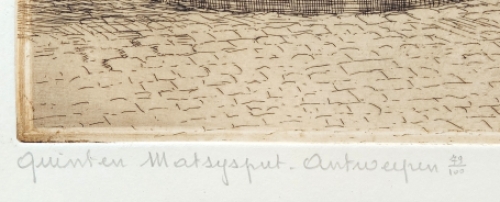 Quinten Matsysput. Antwerpen 49/100